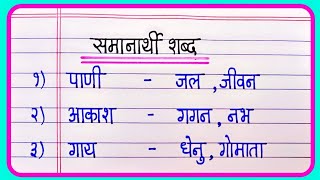 समानार्थी शब्द
१) पाणी - जल , जीवन
२) आकाश - गगन , नभ
३) गाय - धेनु , गोमाता